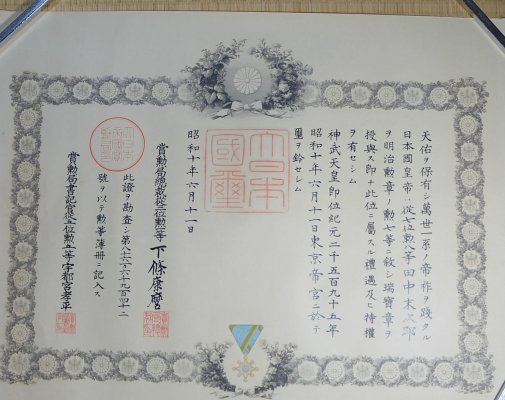 天佑ヲ保有シ萬世一系ノ帝祚ヲ踐タル
日本國皇帝ハ從七位勲八等田中末次郎
ヲ明治勲章ノ勲七等ニ敘シ瑞寶章ヲ
授與ス即チ此位ニ屬スル禮遇及ヒ特權
ヲ有セシム
神武天皇即位紀元二千五百九十五年
昭和十年六月十一日東京帝宮ニ於テ
璽ヲ鈐セシム
大日本國璽
昭和十年六月十一日
賞勲局總裁從三位勲二等下條康麿
此證ヲ勘査シ第八十六万六千九百四十二
號ヲ以テ勲等簿冊ニ記入ス
賞勲局書記官從五位勲五等宇都宮孝平